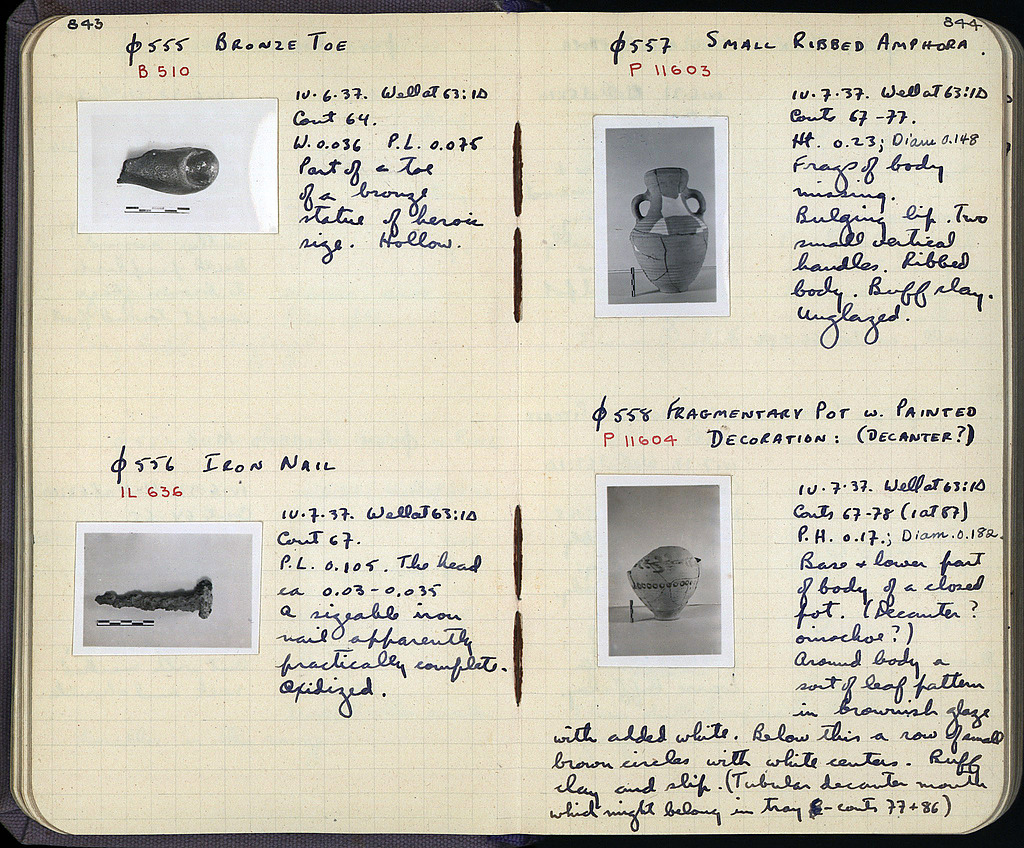 843
φ555 BRONZE TOE
B 510
IV.6.37. Well at 63:ΙΔ
Cont 64.
W. 0.036 P.L. 0.075
Part of a toe
of a bronze
statue of heroic
size. Hollow.
φ556 IRON NAIL
IL 636
IV.7.37. Well at 63:ΙΔ
Cont 67.
P.L. 0.105. The head
ca 0.03-0.035
A sizeable iron
nail apparently
practically complete.
Oxidized.
844
φ557 SMALL RIBBED AMPHORA.
P 11603
IV.7.37. Well at 63:ΙΔ
Conts 67-77.
Ht. 0.23; Diam 0.148
Frags of body
missing.
Bulging lip. Two
small vertical
handles. Ribbed
body. Buff clay.
Unglazed.
φ558 FRAGMENTARY POT W. PAINTED
P 11604 DECORATION: (DECANTER?)
IV.7.37. Well at 63:ΙΔ
Conts 67-78 (1 at 87)
P.H. 0.17.; Diam. 0.182.
Base + lower part
of body of a closed
pot. (Decanter?
oinochoe?)
Around body a
sort of leaf pattern
in brownish glaze
with added white. Below this a row of small
brown circles with white centers. Buff
clay and slip. (Tubular decanter mouth
which might belong in tray - conts 77+86)